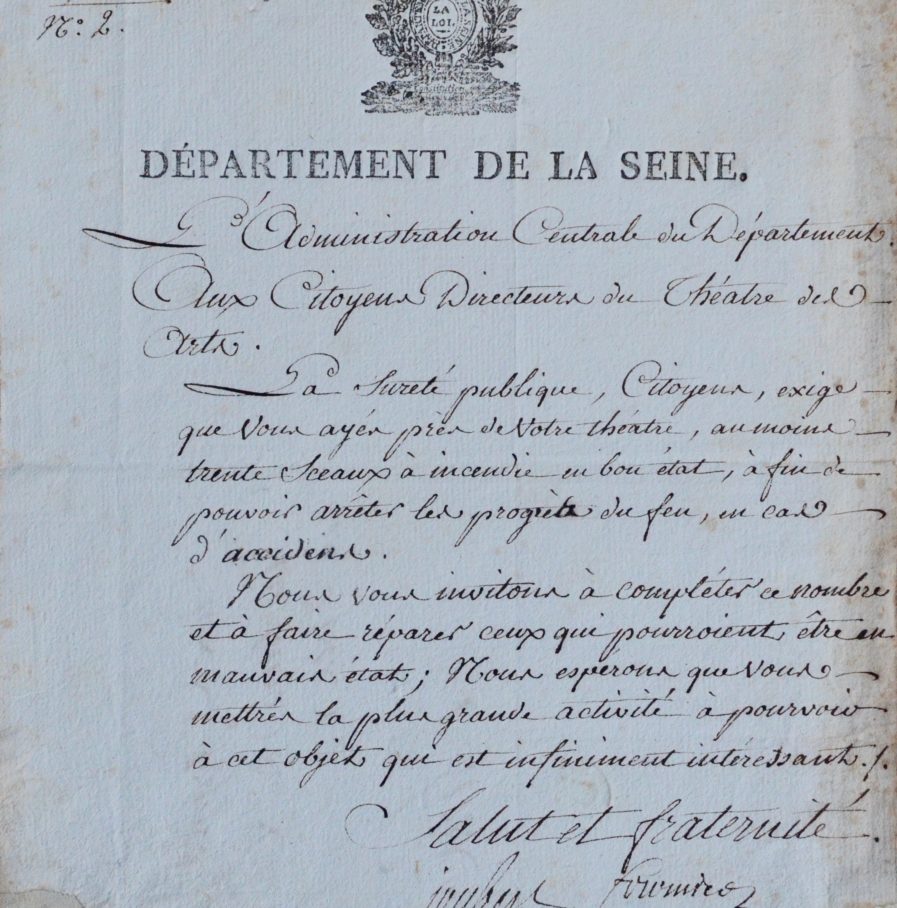 N.° 2.
LA
LOI.
DÉPARTEMENT DE LA SEINE.
L'Administration Centrale du Département.
Aux Citoyens Directeurs du Théatre des
Arts.
La Sureté publique, Citoyens, exige
que Vous ayés près de Votre théatre, au moins
trente Sceaux à incendie en bon état, à fin de
pouvoir arrêter les progrès du feu, en cas
d'accidens.
Nous vous invitons à compléter ce nombre
et à faire réparer ceux qui pourroient être en
mauvais état; Nous espérons que Vous
mettrés la plus grande activité à pourvoir
à cet objet qui est infiniment intéressant./.
Salut et fraternité.
joubert Fournier